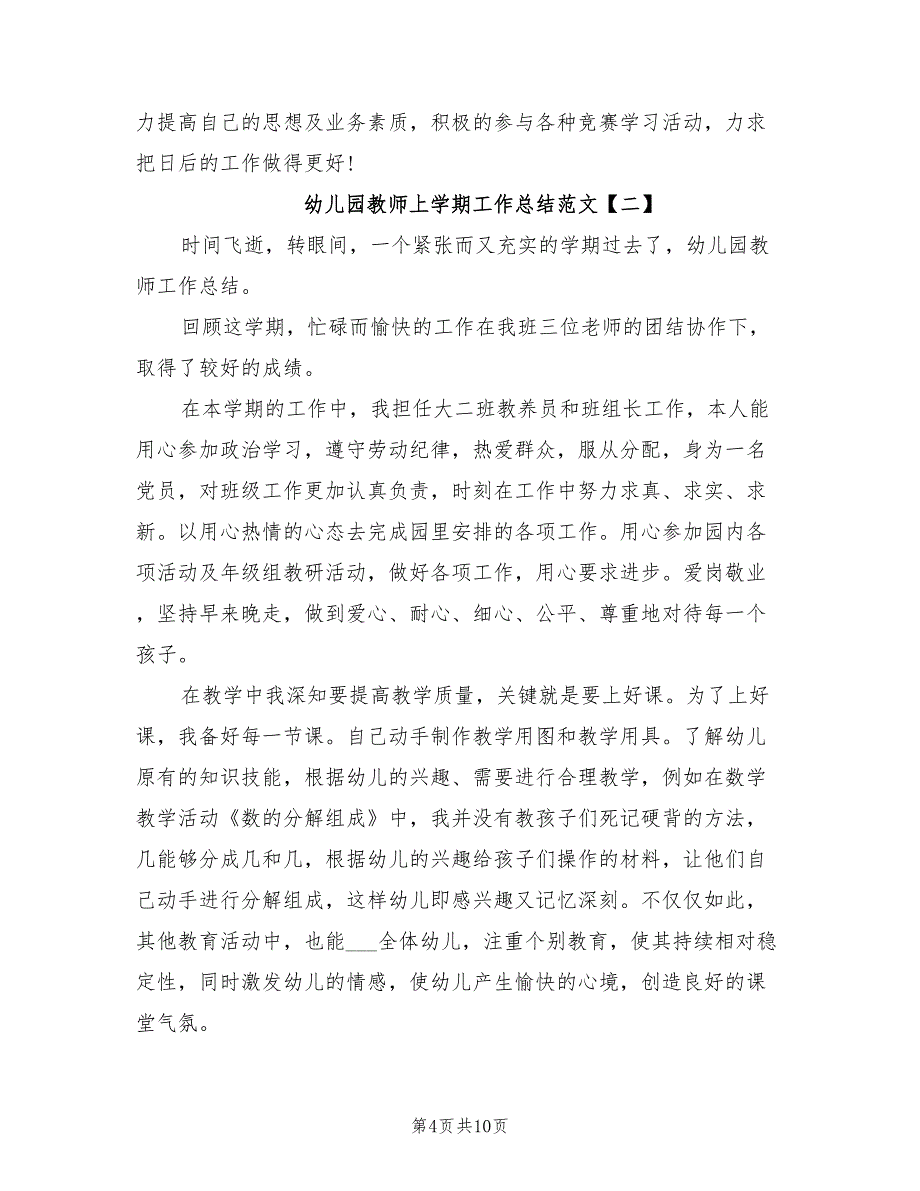 力提高自己的思想及业务素质，积极的参与各种竞赛学习活动，力求
把日后的工作做得更好!
幼儿园教师上学期工作总结范文【二】
时间飞逝，转眼间，一个紧张而又充实的学期过去了，幼儿园教
师工作总结。
回顾这学期，忙碌而愉快的工作在我班三位老师的团结协作下，
取得了较好的成绩。
在本学期的工作中，我担任大二班教养员和班组长工作，本人能
用心参加政治学习，遵守劳动纪律，热爱群众，服从分配，身为一名
党员，对班级工作更加认真负责，时刻在工作中努力求真、求实、求
新。以用心热情的心态去完成园里安排的各项工作。用心参加园内各
项活动及年级组教研活动，做好各项工作，用心要求进步。爱岗敬业
，坚持早来晚走，做到爱心、耐心、细心、公平、尊重地对待每一个
孩子。
在教学中我深知要提高教学质量，关键就是要上好课。为了上好
课，我备好每一节课。自己动手制作教学用图和教学用具。了解幼儿
原有的知识技能，根据幼儿的兴趣、需要进行合理教学，例如在数学
教学活动《数的分解组成》中，我并没有教孩子们死记硬背的方法，
几能够分成几和几，根据幼儿的兴趣给孩子们操作的材料，让他们自
己动手进行分解组成，这样幼儿即感兴趣又记忆深刻。不仅仅如此，
其他教育活动中，也能___全体幼儿，注重个别教育，使其持续相对稳
定性，同时激发幼儿的情感，使幼儿产生愉快的心境，创造良好的课
堂气氛。
第4页共10页